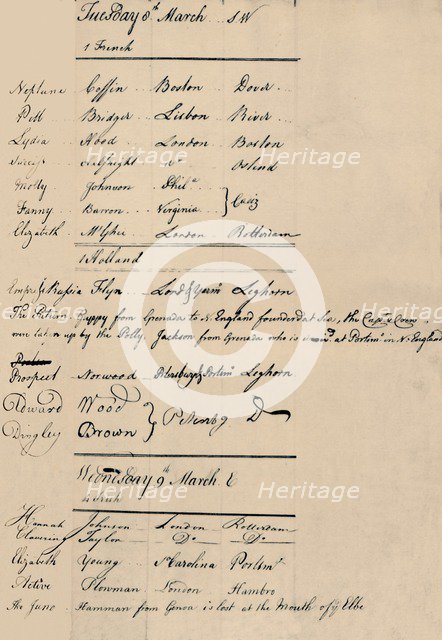 Tuesday 8th March .. S W
1 French
Neptune .. Coffin .. Boston .. Dover ..
Pitt .. Bridger .. Lisbon .. River ..
Lydia .. Hood .. London .. Boston
Do Ostend
Molly .. Johnson .. Phila }
Fanny .. Barron .. Virginia } Cadiz
Elizabeth McGhee London Rotterdam
1 Holland
Empss of Russia Flyn Lond & Yarmo Leghorn
The Puppy from Grenada to N England founderd at Sea, the Capt & Crew
were taken up by the Polly, Jackson from Grenada who is at Portsmo in N England
Prospect Norwood Petersburg & Portsmo Leghorn
Edward Wood }
Dingley Brown } Petersbg Do
Wednesday 9th March. E
Hannah Johnson London Rotterdam
Clavering Taylor Do Do
Elizabeth Young So Carolina Portsmo
Active Plowman London Hambro
The Juno Hamman from Genoa is lost at the Mouth of ye Elbe
Heritage
Heritage
Heritage
Heritage
Heritage
Heritage